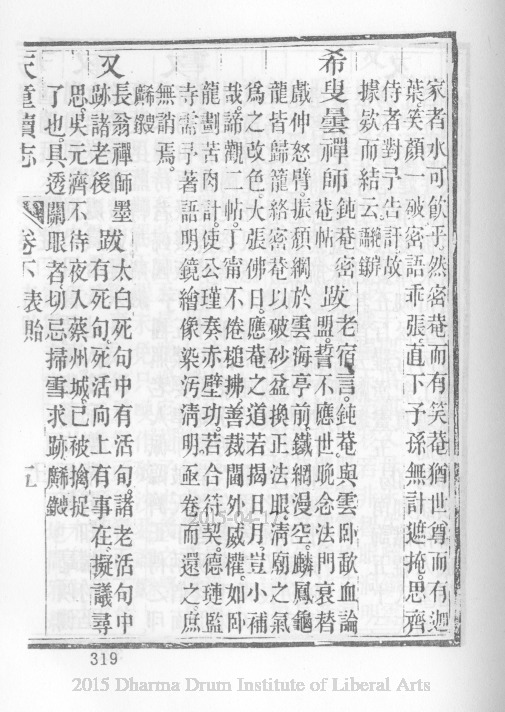 家者水可飮乎然密菴而有笑菴猶世尊而有迦
葉笑顏一破密語乖張直下子孫無計遮掩思齊
侍者對予告訐故
據欵而結云
希叟曇禪師鈍菴密菴帖跋老宿言鈍菴與雲卧歃血論
盟誓不應世晩念法門衰替
戲仲怒臂振頹綱於雲海亭前鐵網漫空麟鳳龜
龍皆歸籠絡密菴以破砂盆換正法眼淸廟之氣
爲之改色大張佛日應菴之道若揭日月豈小補
哉諦觀二帖丁甯不倦槌拂善裁閫外威權如卧
龍劃苦肉計使公瑾奏赤壁功若合符契德璉監
寺需予著語明鏡繪像染汚淸明亟卷而還之庶
無誚焉
又
長翁禪師墨跡諸老後跋太白死句中有活句諸老活句中
有死句死活向上有事在擬議尋
思吳元濟不待夜入蔡州城已破擒捉
了也具透關眼者切忌掃雪求跡
天童續志
卷下
表貽
五
319
2013-04-17
2015 Dharma Drum Institute of Liberal Arts